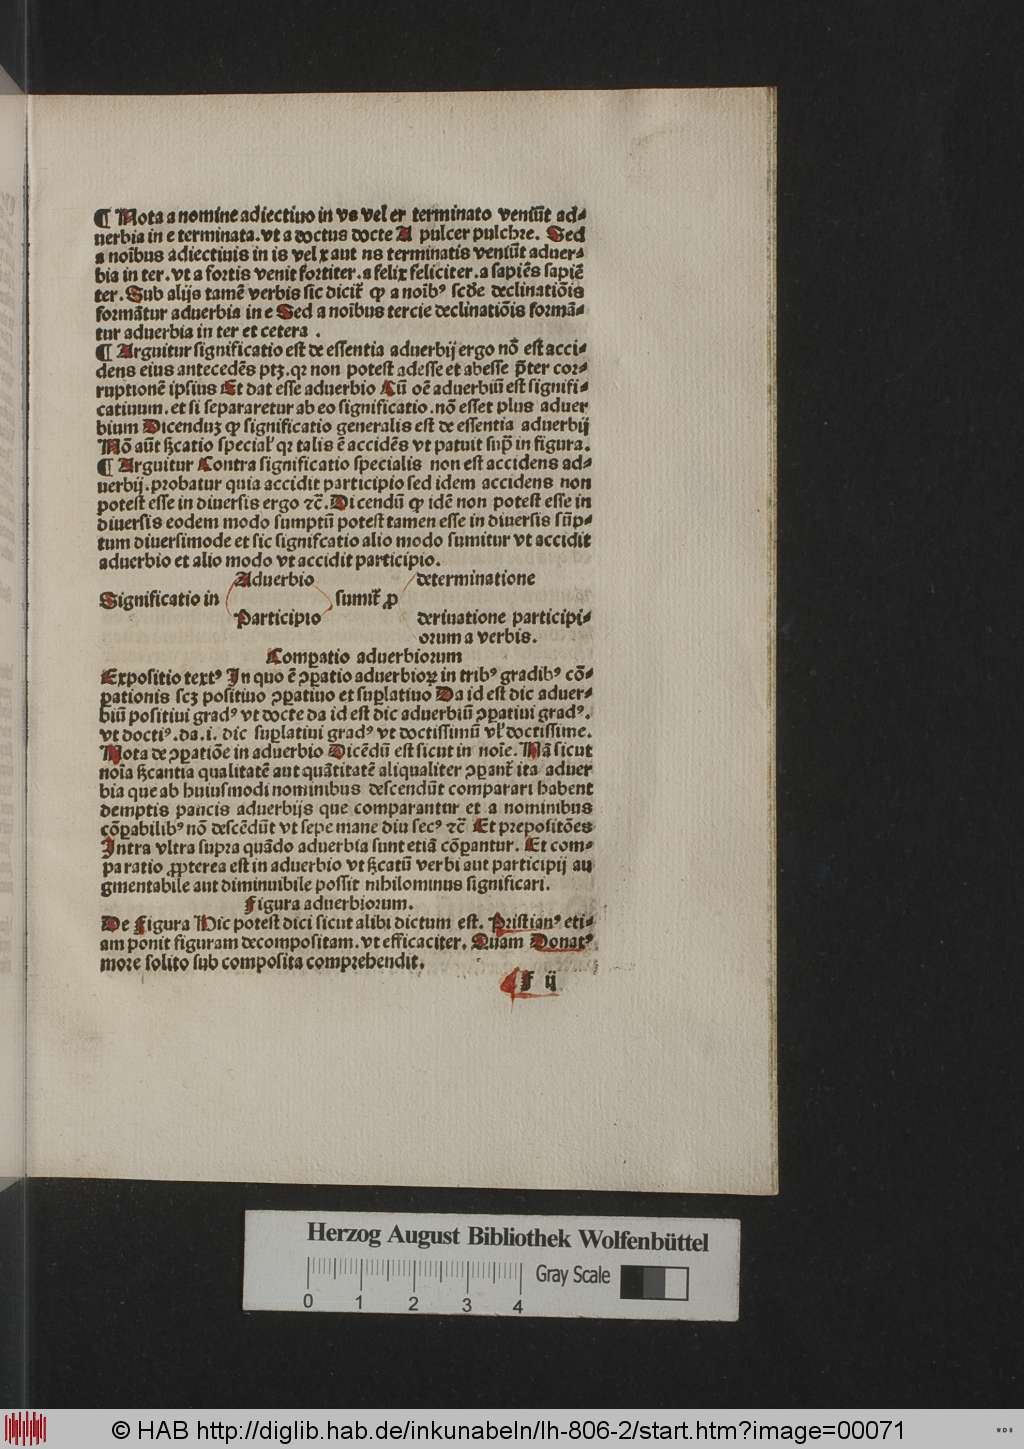 ¶ Nota a nomine adiectiuo in vs vel er terminato veniūt ad⸗
uerbia in e terminata.vt a doctus docte A pulcer pulchre. Sed
a noībus adiectiuis in is vel x aut ns terminatis veniūt aduer⸗
bia in ter.vt a fortis venit fortiter.a felix feliciter.a sapiēs sapiē
ter.Sub alijs tamē verbis sic dicit᷑ ꝙ a noībꝰ scd̄e declinatiōis
formātur aduerbia in e Sed a noībus tercie declinatiōis formā⸗
tur aduerbia in ter et cetera .
¶ Arguitur significatio est de essentia aduerbij ergo nō est acci⸗
dens eius antecedēs ptꝫ.qꝛ non potest adesse et abesse p̄ter cor⸗
ruptionē ipsius Et dat esse aduerbio Cū oē aduerbiū est signifi⸗
catiuum.et si separaretur ab eo significatio.nō esset plus aduer
bium Dicenduꝫ ꝙ significatio generalis est de essentia aduerbij
Mō aūt sꝫcatio special᷑ qꝛ talis ē accidēs vt patuit sup̄ in figura.
¶ Arguitur Contra significatio specialis non est accidens ad⸗
uerbij.probatur quia accidit participio sed idem accidens non
potest esse in diuersis ergo ⁊c̄.Dicendū ꝙ idē non potest esse in
diuersis eodem modo sumptū potest tamen esse in diuersis sūp⸗
tum diuersimode et sic signifcatio alio modo sumitur vt accidit
aduerbio et alio modo vt accidit participio.
Aduerbio determinatione
Significatio in sumit᷑ ꝓ
Participio deriuatione participi⸗
orum a verbis.
Comꝑatio aduerbiorum
Expositio textꝰ In quo ē ꝯꝑatio aduerbioꝝ in tribꝰ gradibꝰ cō⸗
ꝑationis scꝫ positiuo ꝯꝑatiuo et suꝑlatiuo Da id est dic aduer⸗
biū positiui gradꝰ vt docte da id est dic aduerbiū ꝯꝑatiui gradꝰ.
vt doctiꝰ.da.i. dic suꝑlatiui gradꝰ vt doctissimū vl᷑ doctissime.
Nota de ꝯꝑatiōe in aduerbio Dicēdū est sicut in noīe. Nā sicut
noīa sꝫcantia qualitatē aut quātitatē aliqualiter ꝯꝑant᷑ ita aduer
bia que ab huiusmodi nominibus descendūt comparari habent
demptis paucis aduerbijs que comparantur et a nominibus
cōꝑabilibꝰ nō descēdūt vt sepe mane diu secꝰ ⁊c̄ Et prepositōes
Intra vltra supra quādo aduerbia sunt etiā cōꝑantur. Et com⸗
paratio ꝓpterea est in aduerbio vt sꝫcatū verbi aut participij au
gmentabile aut diminuibile possit nihilominus significari.
Figura aduerbiorum.
De Figura Hic potest dici sicut alibi dictum est. Pristianꝰ eti⸗
am ponit figuram decompositam.vt efficaciter. Quam Donatꝰ
more solito sub composita comprehendit.
F ij
Herzog August Bibliothek Wolfenbüttel
Gray Scale
0 1 2 3 4
© HAB http://diglib.hab.de/inkunabeln/lh-806-2/start.htm?image=00071